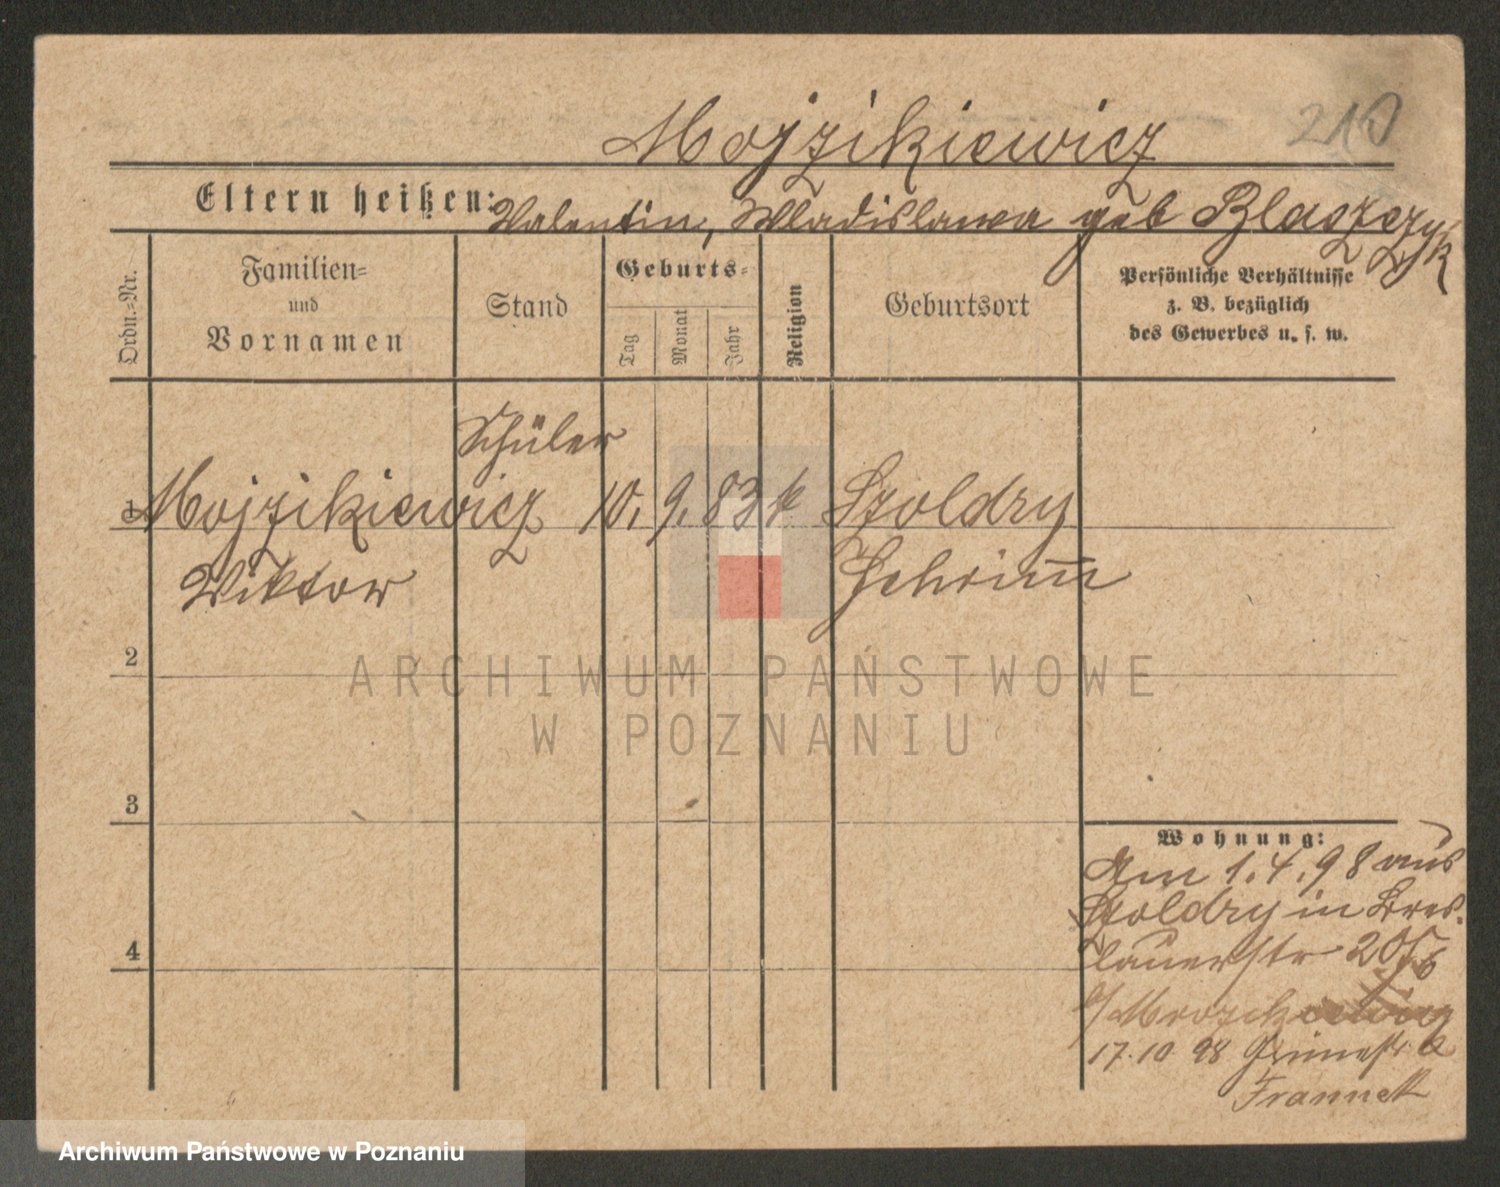 210
Mojzikiewicz
Eltern heißen: Valentin, Wladislawa geb Blaszczyk
Ordn.-Nr.
Familien-
und
Vornamen
Stand
Geburts-
Tag
Monat
Jahr
Religion
Geburtsort
Persönliche Verhältnisse
z. B. bezüglich
des Gewerbes u. s. w.
Schüler
1 Mojzikiewicz 10. 9. 83 k Szoldry
Viktor Schrimm
2
3
4
Wohnung:
Am 1.4.98 aus
Szoldry in Bres-
lauerstr 20
17.10 98
Franneck
ARCHIWUM PAŃSTWOWE
W POZNANIU
Archiwum Państwowe w Poznaniu